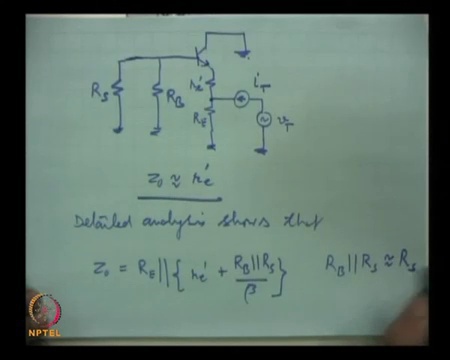 re'
iT
RS
RB
RE
vT
z₀ ≈ re'
Detailed analysis shows that
z₀ = RE || { re' + RB||RS / β }   RB || RS ≈ RS
NPTEL